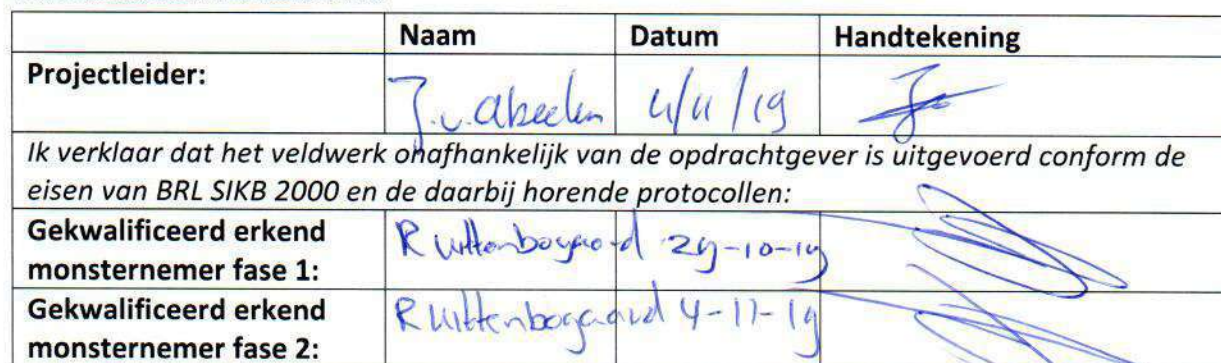 Naam Datum Handtekening
Projectleider: J.v. Abeelen 4/11/19
Ik verklaar dat het veldwerk onafhankelijk van de opdrachtgever is uitgevoerd conform de
eisen van BRL SIKB 2000 en de daarbij horende protocollen:
Gekwalificeerd erkend
monsternemer fase 1: R Uittenbogaard 29-10-19
Gekwalificeerd erkend
monsternemer fase 2: R Uittenbogaard 4-11-19